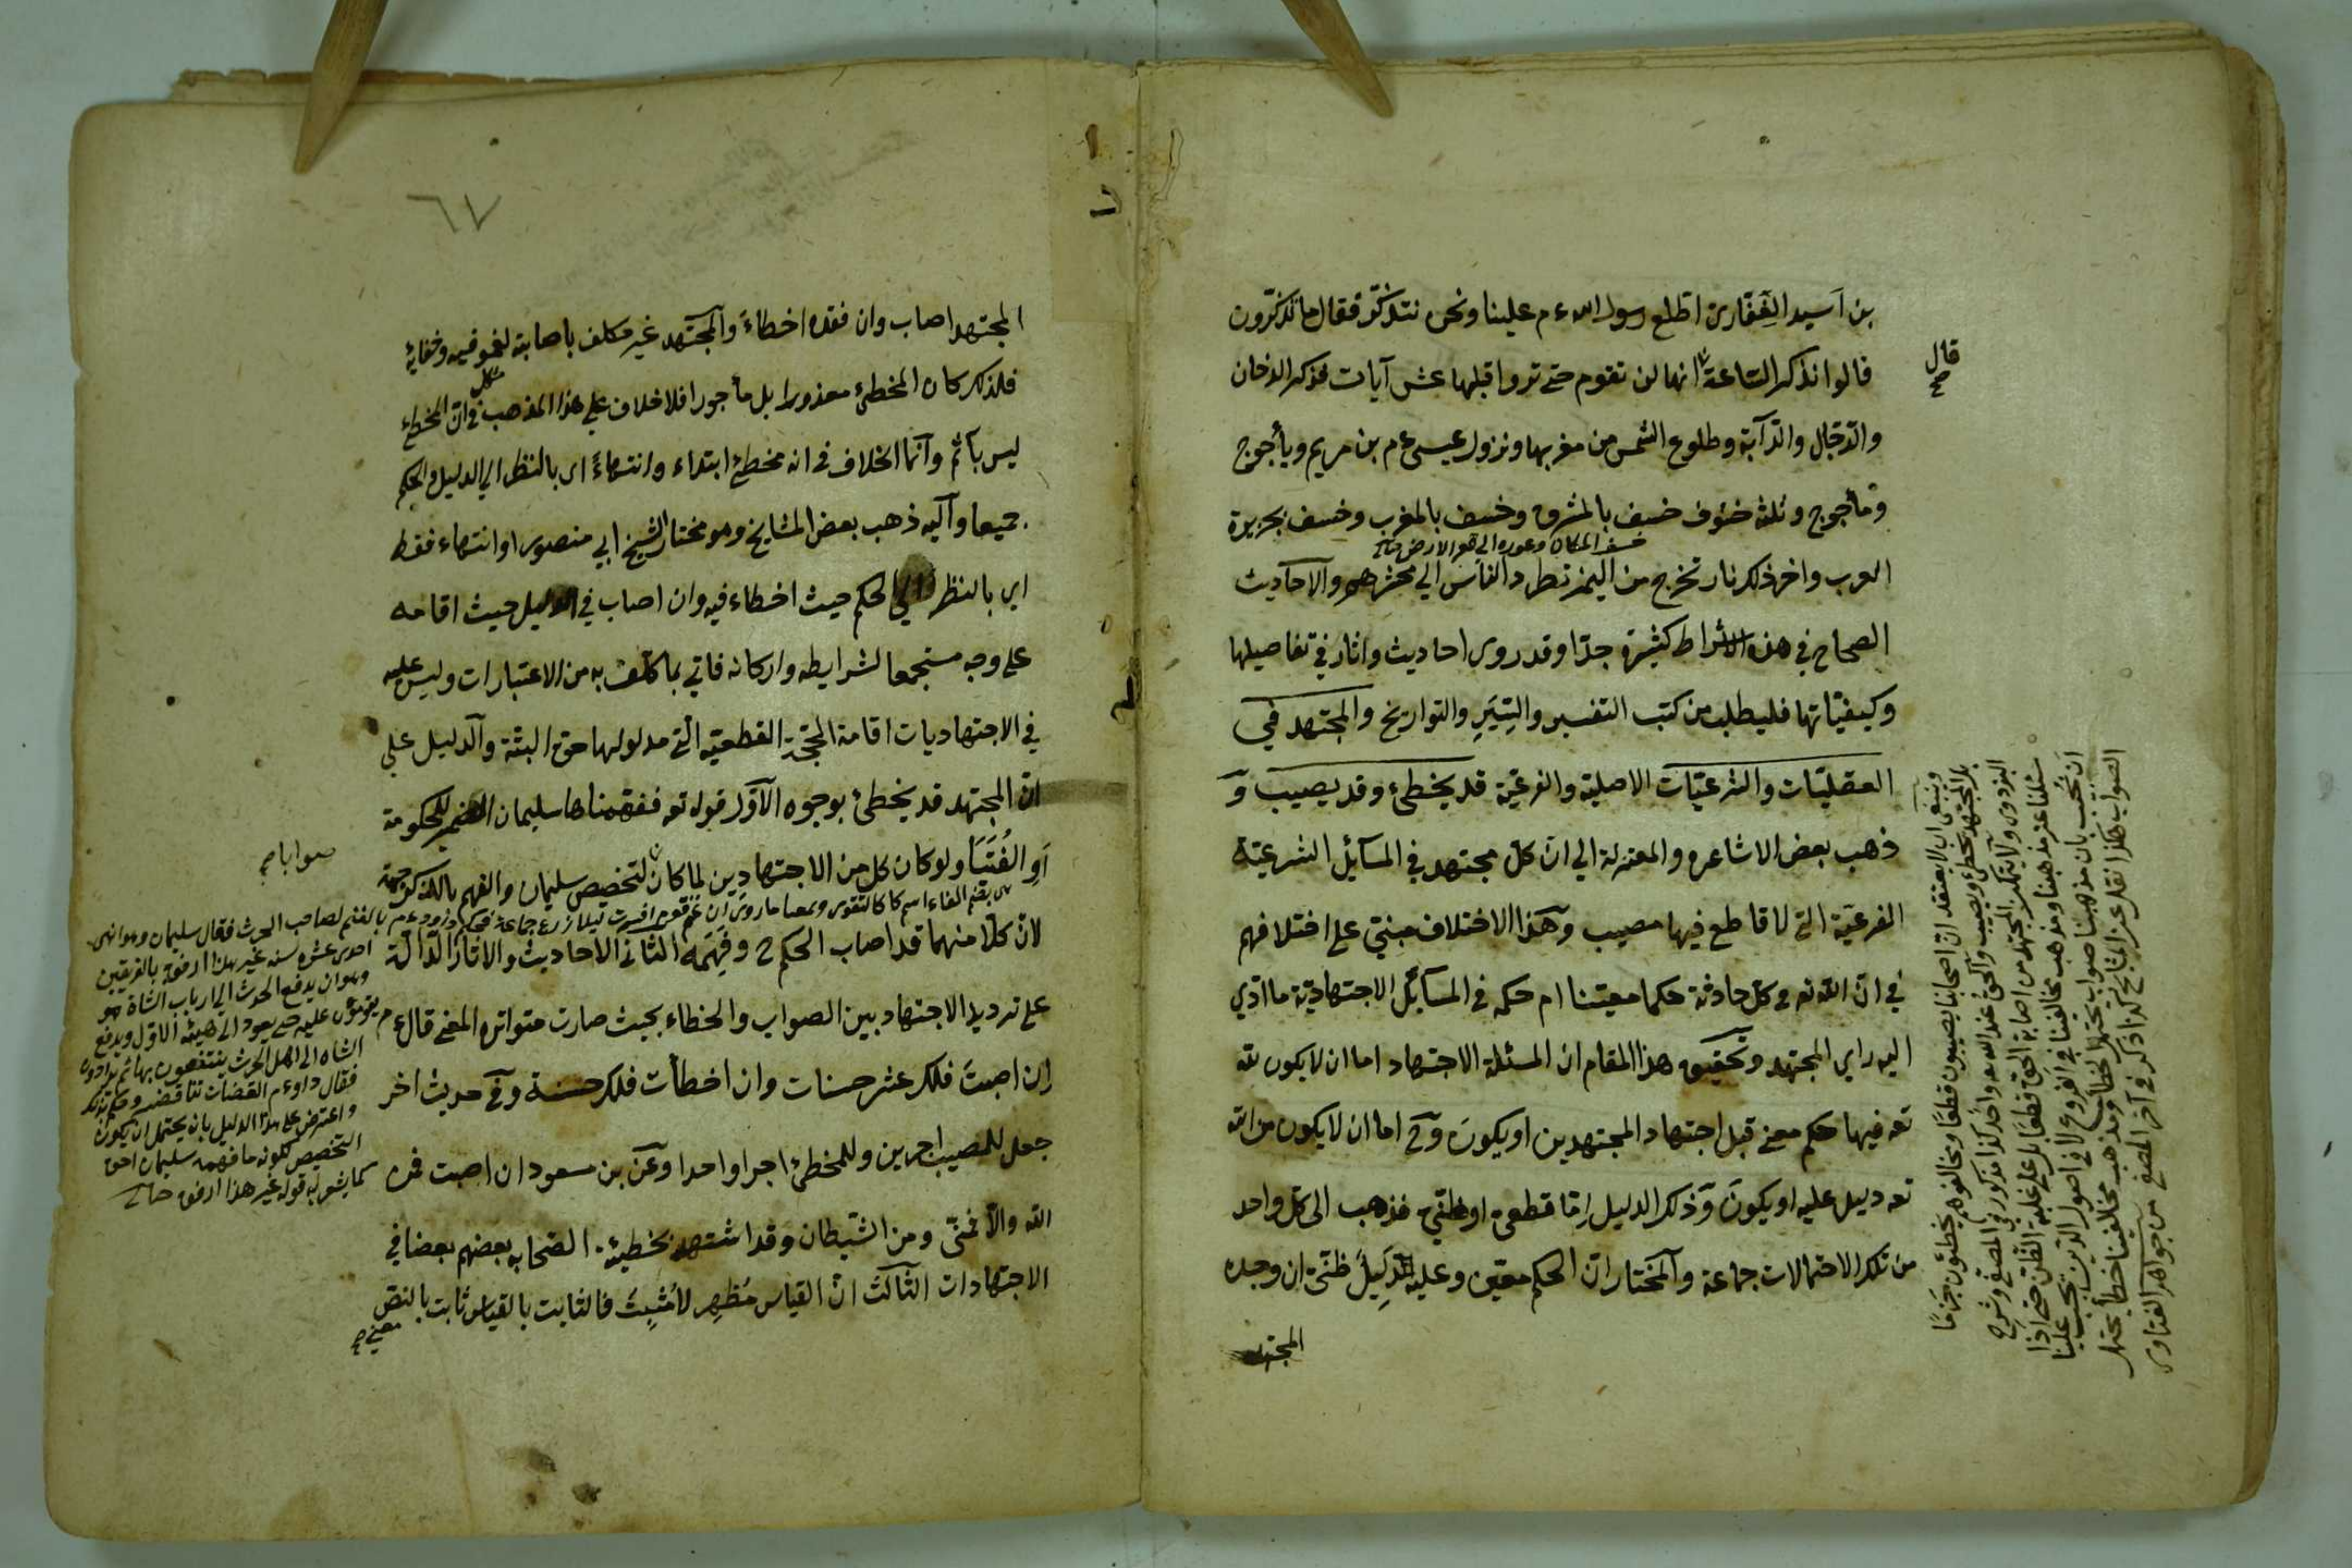 بن اسيد الغفاري اطلع رسول الله ءم علينا ونحن نتذكر فقال ما تذكرون
قالوا نذكر الساعة انها لن تقوم حتى تروا قبلها عشر آيات فذكر الدخان
قال
صح
والدجال والدآبة وطلوع الشمس من مغربها ونزول عيسى ءم بن مريم ويأجوج
ومأجوج وثلثة خسوف خسف بالمشرق وخسف بالمغرب وخسف بجزيرة
خسف المكان وغوره الى قعر الارض
العرب واخر ذلك نار تخرج من اليمن تطرد الناس الي محشرهم والاحاديث
الصحاح في هذه الاشراط كثيرة جدا وقد روى احاديث واثار في تفاصيلها
وكيفياتها فليطلب من كتب التفسير والسير والتواريخ والمجتهد في
العقليات والشرعيات الاصلية والفرعية قد يخطئ وقد يصيب و
ذهب بعض الاشاعره والمعتزلة الي ان كل مجتهد في المسائل الشرعية
الفرعية التي لا قاطع فيها مصيب وهذا الاختلاف مبني على اختلافهم
في ان الله تع في كل حادثة حكما معينا ام حكمه في المسائل الاجتهادية ما ادي
اليه راي المجتهد وتحقيق هذا المقام ان المسئلة الاجتهاد اما ان لا يكون لله
تع فيها حكم معين قبل اجتهاد المجتهدين او يكون وح اما ان لا يكون من الله
تع دليل عليه او يكون وذلك الدليل اما قطعي او ظني فذهب الى كل واحد
من تلك الاحتمالات جماعة والمختار ان الحكم معين وعليه دليل ظني ان وجده
المجتهد
وينبغي ان لا يعتقد ان اصحابنا يصيبون قطعا ومخالفوهم يخطئون جزما
بل المجتهد يخطئ ويصيب والحق عند الله واحد كذا مذكور في المصفى وشرح
البزدوي ولا يتمكن المجتهد من اصابة الحق قطعا بل على غلبة الظن حتى اذا
سئلنا عن مذهبنا ومذهب مخالفينا في الفروع لا في اصول الدين يجب علينا
ان نجيب بان مذهبنا صواب يحتمل الخطأ ومذهب مخالفينا خطأ يحتمل
الصواب هكذا نقل عن المشايخ كذا ذكر في آخر المصفى من جواهر الفتاوى
٦٧
المجتهد اصاب وان فقده اخطاء والمجتهد غير مكلف باصابته لغموضه وخفائه
فلذلك كان المخطئ معذورا بل مأجورا فلا خلاف علي هذا المذهب في ان المخطئ
ليس باثم وانما الخلاف في انه مخطئ ابتداء وانتهاء اي بالنظر الي الدليل والحكم
جميعا واليه ذهب بعض المشايخ وهو مختار الشيخ ابي منصور او انتهاء فقط
اي بالنظر الي الحكم حيث اخطاء فيه وان اصاب في الدليل حيث اقامه
على وجه مستجمعا لشرايطه واركانه فاتي بما كلف به من الاعتبارات وليس عليه
في الاجتهاديات اقامة الحجة القطعية التي مدلولها حق البتة والدليل علي
ان المجتهد قد يخطئ بوجوه الاول قوله تع ففهمناها سليمان الضمير للحكومة
او الفتيا ولو كان كل من الاجتهادين لما كان لتخصيص سليمان والفهم بالذكر جهة
صوابا صح
لان كلا منهما قد اصاب الحكم ح وفهمه الثاني الاحاديث والاثار الدالة
على ترديد الاجتهاد بين الصواب والخطاء بحيث صارت متواترة المعنى قال ءم
ان اصبت فلك عشر حسنات وان اخطأت فلك حسنة وفي حديث اخر
جعل للمصيب اجرين وللمخطئ اجرا واحدا وعن بن مسعود ان اصبت فمن
الله والا فمني ومن الشيطان وقد اشتهر تخطئة الصحابه بعضهم بعضا في
الاجتهادات الثالث ان القياس مظهر لا مثبت فالثابت بالقياس ثابت بالنص
معنى صح
بالغنم لصاحب الحرث فقال سليمان وهو ابن
احدى عشره سنه غير هذا ارفق بالفريقين
وهو ان يدفع الحرث الي ارباب الشاة
يقومون عليه حتى يعود الى هيئته الاول ويدفع
الشاه الى اهل الحرث ينتفعون بها ثم يترادون
واعترض على هذا الدليل بان يحتمل ان يكون
التخصيص لكون ما فهمه سليمان احق
كما يشعر به قوله غير هذا ارفق